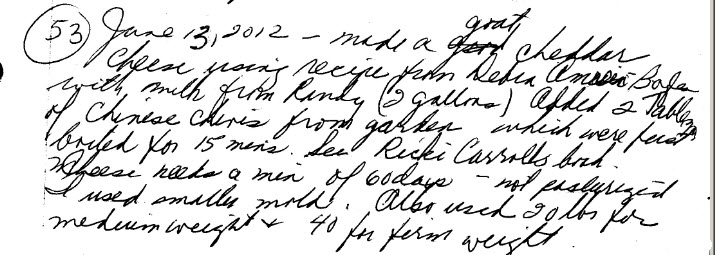 goat
53 June 13, 2012 – made a good cheddar
cheese using recipe from Debra
with milk from Randy (2 gallons) Added 2 Tables
of Chinese Chives from garden which were first
boiled for 15 mins. See Ricki Carrolls book.
Cheese needs a min of 60 days – not pasturized
I used smaller mold. Also used 20 lbs for
medium weight & 40 for firm weight